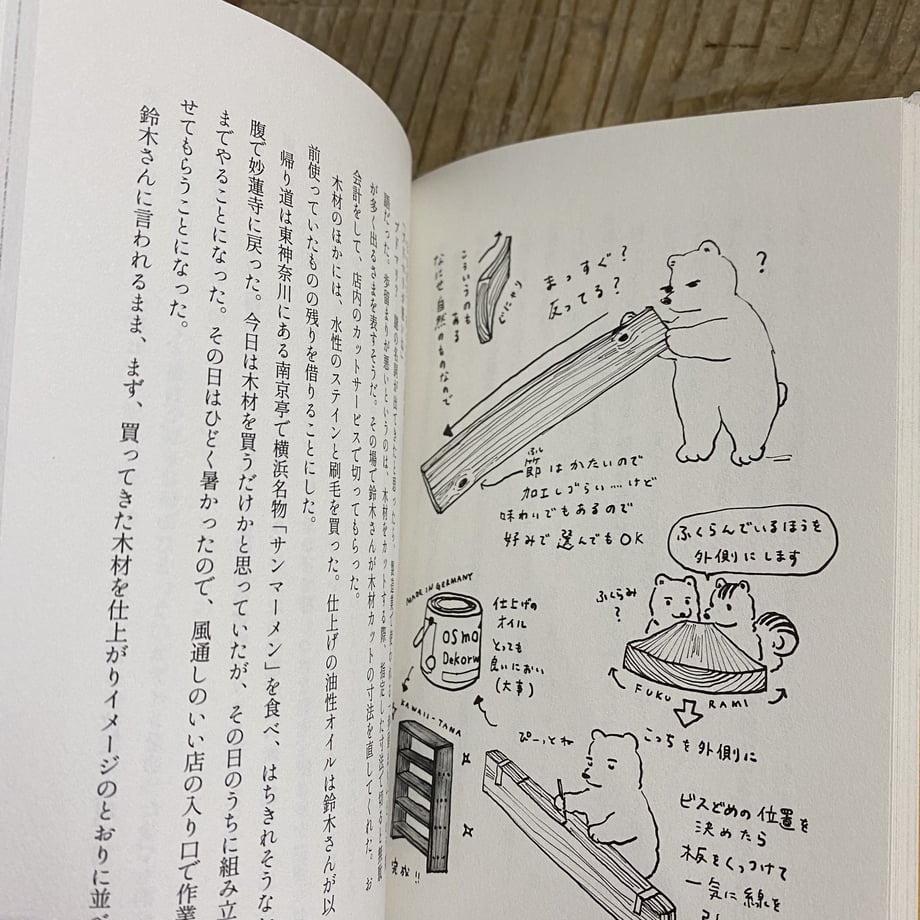 が多く出るさまを表すそうだ。その場で鈴木さんが木材カットの寸法を直してくれた。お
会計をして、店内のカットサービスで切ってもらった。
木材のほかには、水性のステインと刷毛を買った。仕上げの油性オイルは鈴木さんが以
前使っていたものの残りを借りることにした。
帰り道は東神奈川にある南京亭で横浜名物「サンマーメン」を食べ、はちきれそうな
腹で妙蓮寺に戻った。今日は木材を買うだけかと思っていたが、その日のうちに組み立
までやることになった。その日はひどく暑かったので、風通しのいい店の入り口で作業
せてもらうことになった。
鈴木さんに言われるまま、まず、買ってきた木材を仕上がりイメージのとおりに並べ
?
まっすぐ?
反ってる?
ぐにゃり
こういうのも
ある
なにせ自然のものなので
節はかたいので
ふし
加工しづらい…けど
味わいでもあるので
好みで選んでもOK
ふくらんでいるほうを
外側にします
ふくらみ
?
FUKURAMI
こっちを外側に
MADE IN GERMANY
OSMO
Dekorw
仕上げの
オイル
とっても
良いにおい
(大事)
KAWAII-TANA
完成!!
ぴーっとね
ビスどめの位置を
決めたら
板をくっつけて
一気に線を